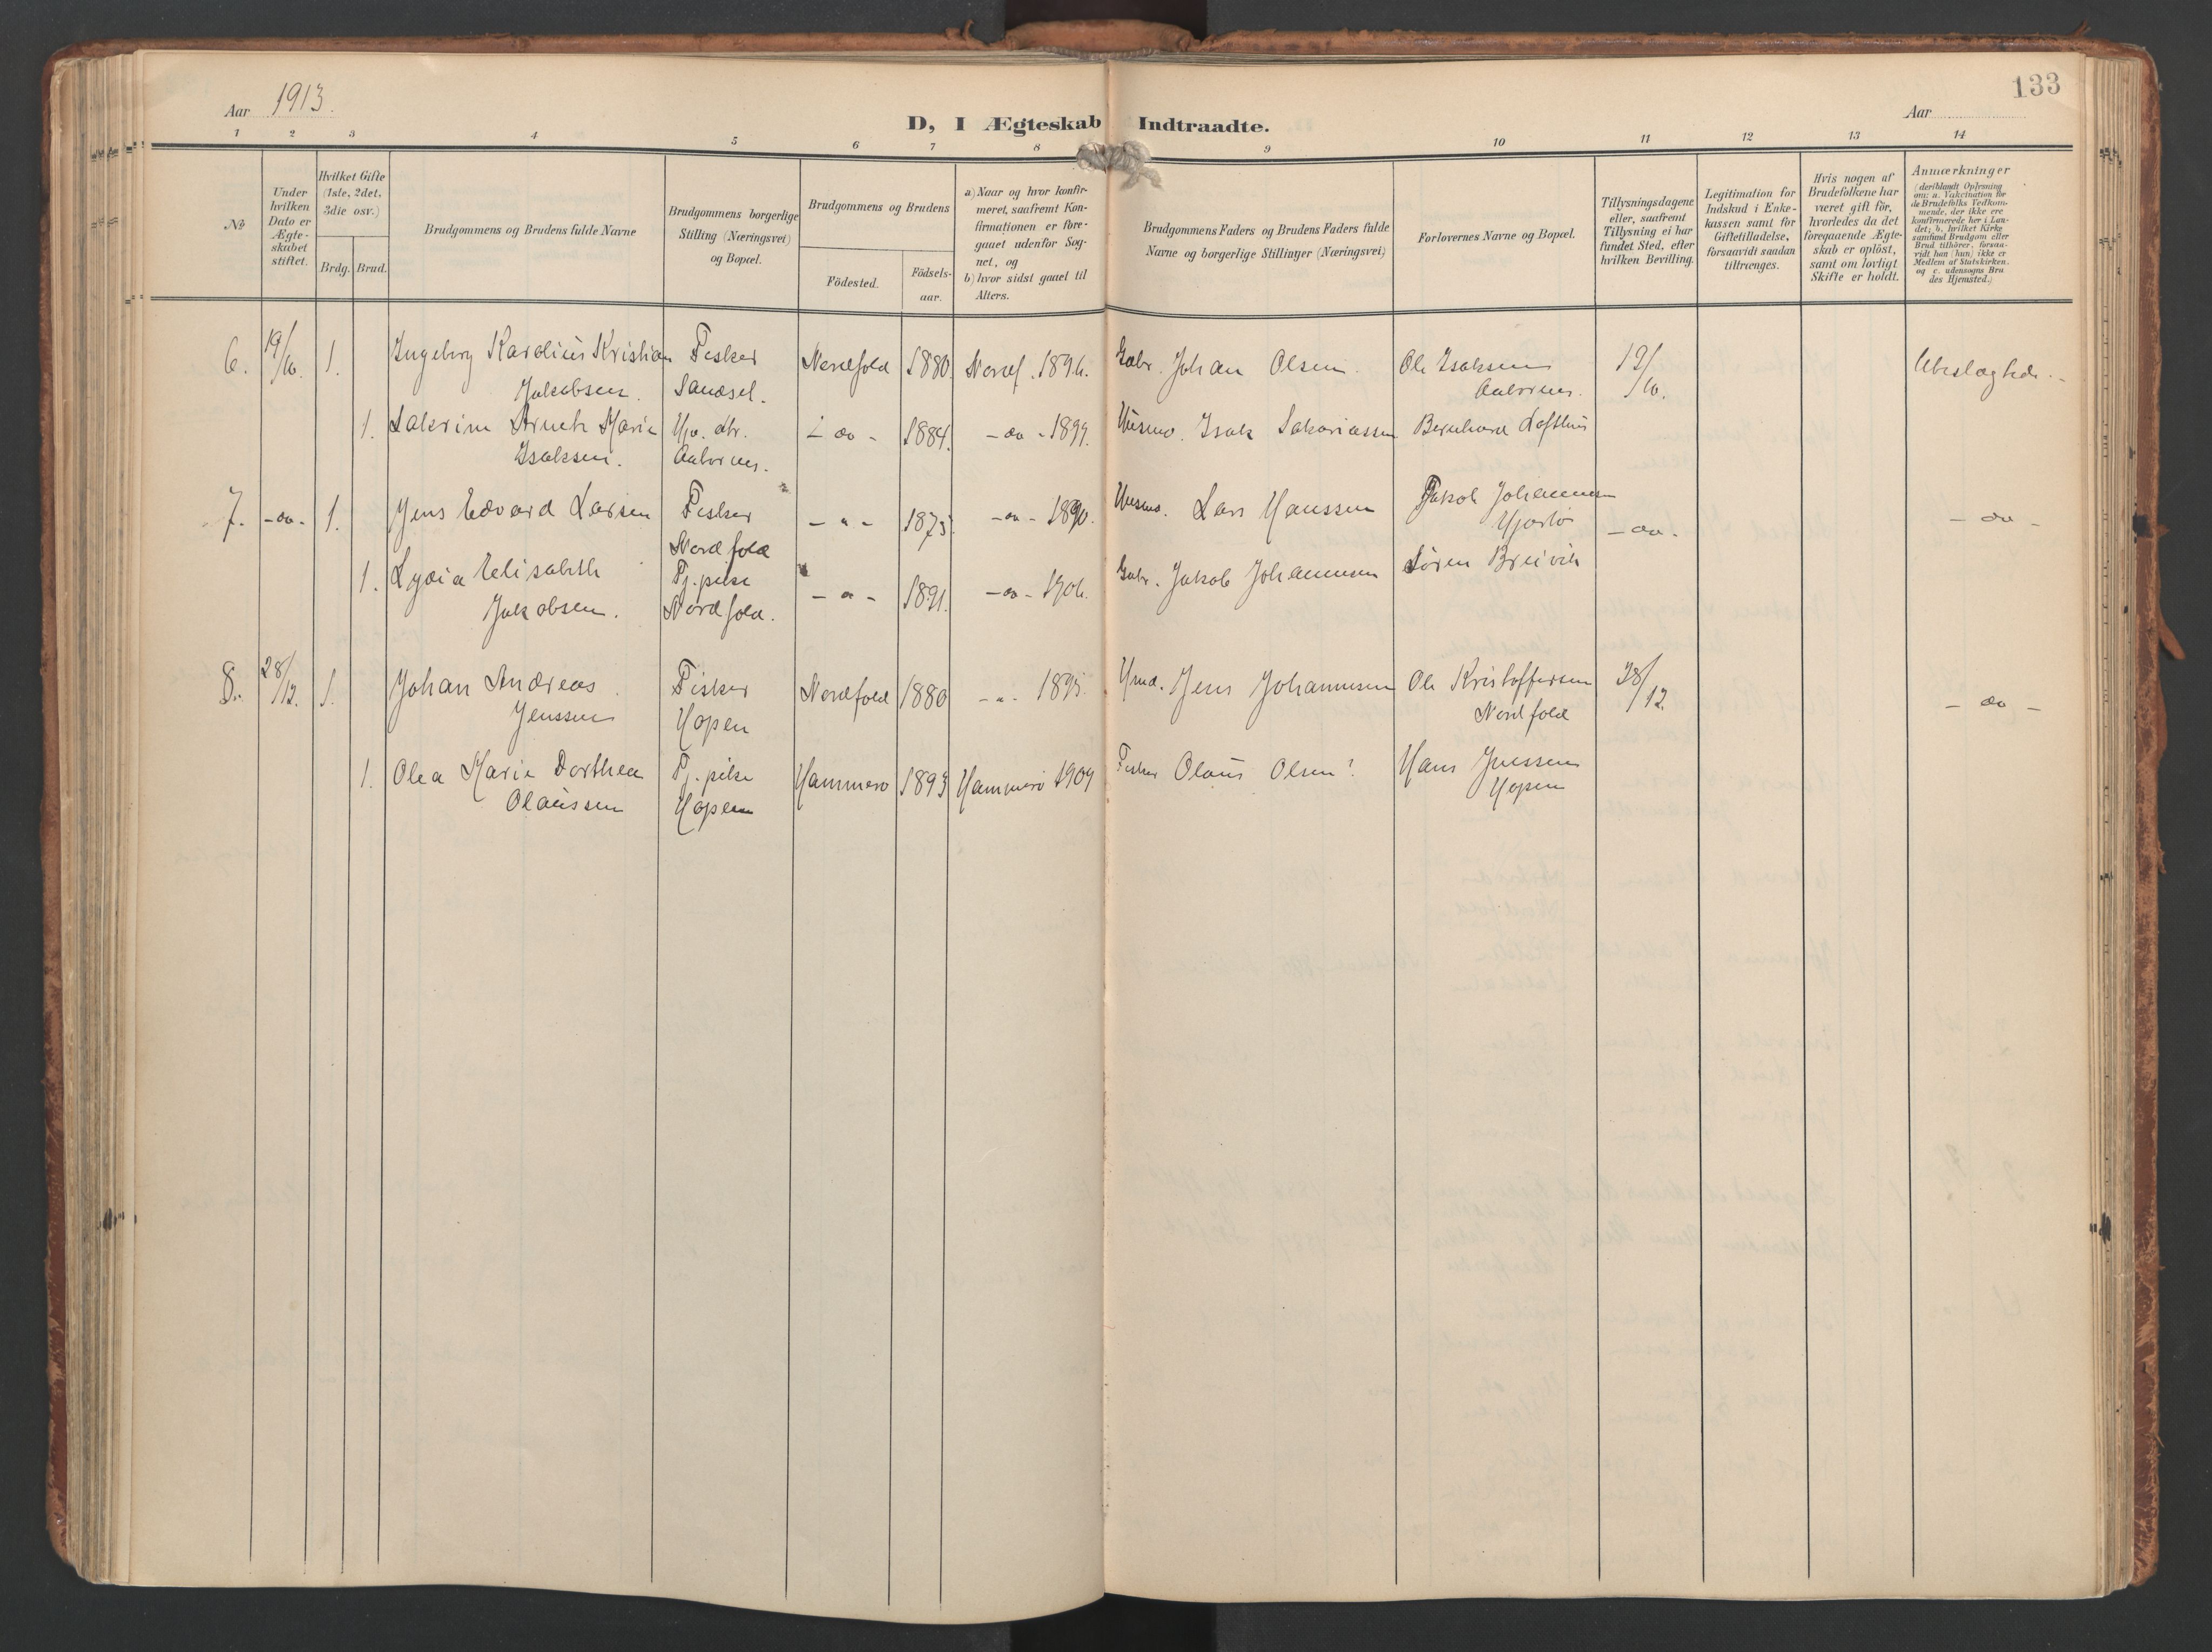 133
Aar 1913.
D, I Ægteskab Indtraadte.
Aar
1 2 3 4 5 6 7 8 9 10 11 12 13 14
№
Under
hvilken
Dato er
Ægte-
skabet
stiftet.
Hvilket Gifte
(1ste, 2det,
3die osv.)
Brdg. Brud.
Brudgommens og Brudens fulde Navne
Brudgommens borgerlige
Stilling (Næringsvei)
og Bopæl.
Brudgommens og Brudens
Födested.
Födsels-
aar.
a) Naar og hvor konfir-
meret, saafremt Kon-
firmationen er fore-
gaaet udenfor Sog-
net, og
b) hvor sidst gaaet til
Alters.
Brudgommens Faders og Brudens Faders fulde
Navne og borgerlige Stillinger (Næringsvei)
Forlovernes Navne og Bopæl.
Tillysningsdagene
eller, saafremt
Tillysning ei har
fundet Sted, efter
hvilken Bevilling.
Legitimation for
Indskud i Enke-
kassen samt for
Giftetilladelse,
forsaavidt saadan
tiltrænges.
Hvis nogen af
Brudefolkene har
været gift för,
hvorledes da det
foregaaende Ægte-
skab er oplöst,
samt om lovligt
Skifte er holdt.
Anmærkninger
(deriblandt Oplysning
om: a. Vakcination for
de Brudefolks Vedkom-
mende, der ikke ere
konfirmerede her i Lan-
det; b. hvilket Kirke
samfund Brudgom eller
Brud tilhörer, forsaa-
vidt han (hun) ikke er
Medlem af Statskirken.
og c. udensogns Bru
des Hjemsted.)
6. 19/10. 1. Ingeborg Karolius Kristian Fisker Nordfold 1880. Nordf. 1896. Gabr. Johan Olsen. Ole Isaksen 19/10. Ubeslægtede.
Jakobsen. Sandsel. Aalvnes.
1. Marie - do - 1884. - do - 1899. Isak Sakariassen Bernhard Lofthus
Isaksen. Aalvnes.
7. - do - 1. Jens Edvard Larsen Fisker - " - 1875. - do - 1890. Lars Hanssen Jakob Johannesen - do - - do -
Nordfold
1. Lydia Elisabeth Tj. pike - " - 1891. - do - 1906. Gabr. Jakob Johannesen Sören Breivik
Jakobsen. Nordfold.
8. 28/12. 1. Johan Andreas Fisker Nordfold 1880 - " - 1895. Jens Johannesen Ole Kristoffersen 28/12. - do -
Jenssen Hopen Nordfold
1. Olea Marie Dorthea Tj. pike Hammerö 1893 Hammerö 1909 Fisker Olaus Olsen? Hans Jenssen
Olaussen Hopen Hopen